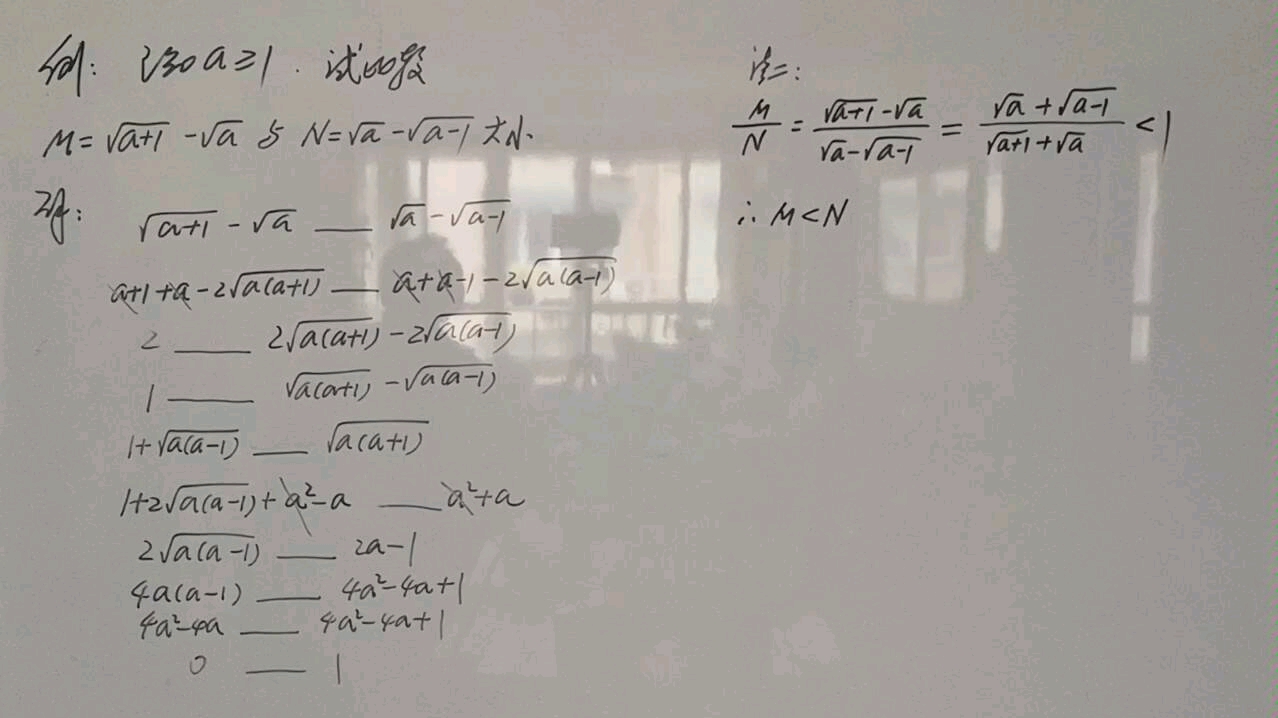 例：已知a≥1．试比较
M=√(a+1) -√a 与 N=√a -√(a-1) 大小.
证：
√(a+1) - √a ___ √a - √(a-1)
a+1+a-2√(a(a+1)) ___ a+a-1-2√(a(a-1))
2 ___ 2√(a(a+1)) -2√(a(a-1))
1 ___ √(a(a+1)) -√(a(a-1))
1+√(a(a-1)) ___ √(a(a+1))
1+2√(a(a-1)) + a²-a ___ a²+a
2√(a(a-1)) ___ 2a-1
4a(a-1) ___ 4a²-4a+1
4a²-4a ___ 4a²-4a+1
0 ___ 1
法二：
M/N = (√(a+1) -√a)/(√a -√(a-1)) = (√a +√(a-1))/(√(a+1) +√a) < 1
∴ M<N